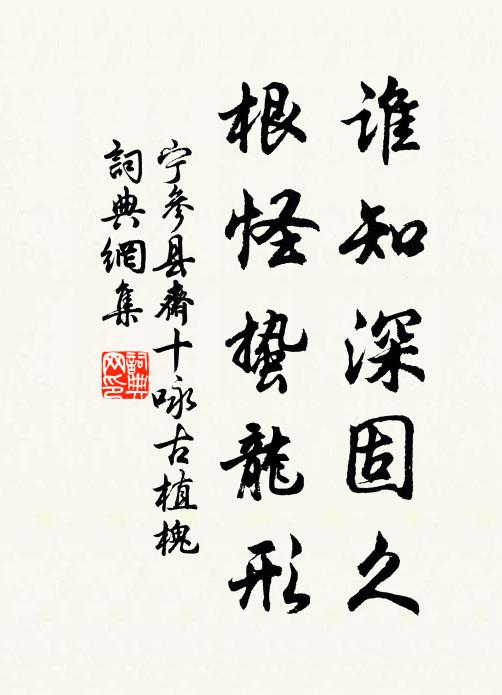 谁知深固久
根怪蛰龍形
宁参县齋十咏古植槐
詞典網集
詞典网印